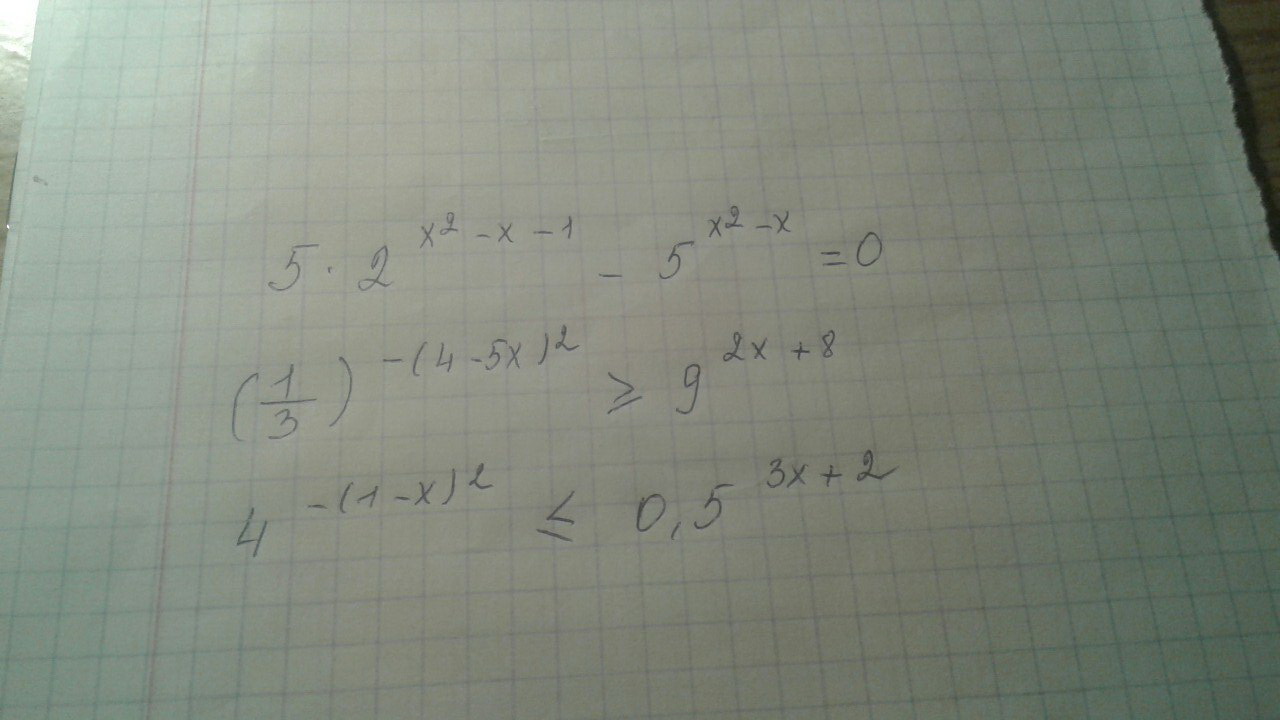 5 · 2^{x^2 - x - 1} - 5^{x^2 - x} = 0
(1/3)^{-(4 - 5x)^2} ≥ 9^{2x + 8}
4^{-(1 - x)^2} ≤ 0,5^{3x + 2}